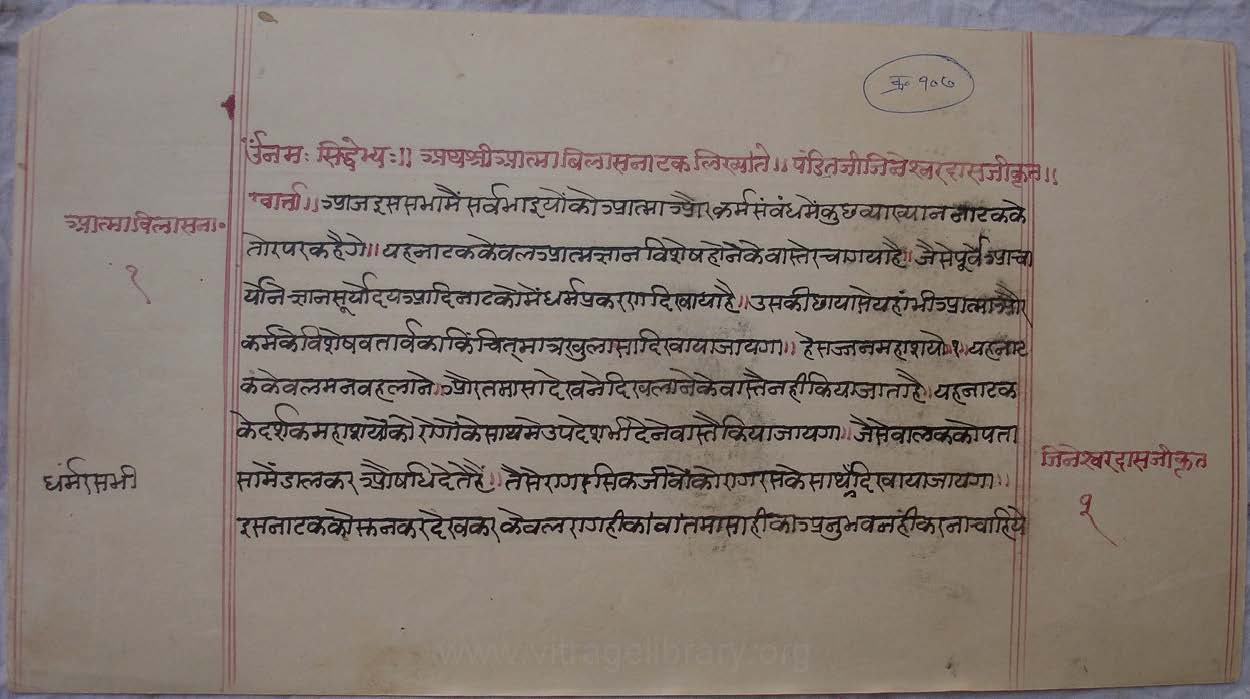 क्र॰ १०७
ॐ नमः सिद्धेभ्यः॥ अथ श्री आत्मा बिलास नाटक लिख्यते॥ पंडितजी जिनेश्वरदासजी कृत॥
वार्त्ता॥ आज इस सभामैं सर्व भाइयों को आत्मा और कर्म संबंध मेंकुछ व्याख्यान नाटक के
आत्मा विलास ना॰
१
तोर पर कहैगे॥ यह नाटक केवल आत्मज्ञान विशेष होनेके वास्ते रचा गया है॥ जैसे पूर्व आचा
र्योने ज्ञानसूर्योदय आदि नाटकोमें धर्म प्रकरण दिखाया है॥ उसकी छाया से यहां भी आत्मा और
कर्मके विशेष वतार्वका किंचित् मात्र खुलासा दिखाया जायगा॥ हे सज्जन महाशयो १ यह नाट
क केवल मन वहलाने॥ और तमासा देखने दिखलाने के वास्तै नही किया जाता है॥ यह नाटक
के दर्शक महाशयों को रागों के साथमे उपदेश भी देने वास्तै किया जायगा॥ जैसे वालक को पता
सामें डालकर औषधि देते हैं॥ तैसे रागरसिक जीवों को रागरसके साथ दिखाया जायगा॥
इस नाटक को सुनकर देखकर केवल राग ही का वा तमासा ही का अनुभव नहीं करना चाहिये
धर्मरसभी
जिनेश्वरदासजी कृत
१
www.vitragelibrary.org